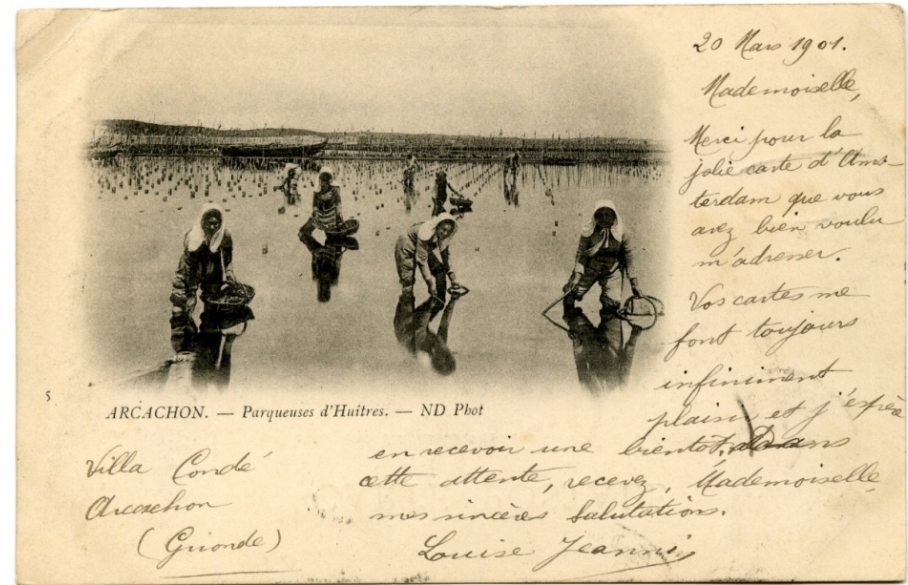 20 Mars 1901.
Mademoiselle,
Merci pour la
jolie carte d'Ams-
terdam que vous
avez bien voulu
m'adresser.
Vos cartes me
font toujours
infiniment
plaisir et j'espère
en recevoir une bientôt. Dans
cette attente, recevez, Mademoiselle,
mes sincères salutations.
Louise
5
ARCACHON. — Parqueuses d'Huîtres. — ND Phot
Villa Condé
Arcachon
(Gironde)